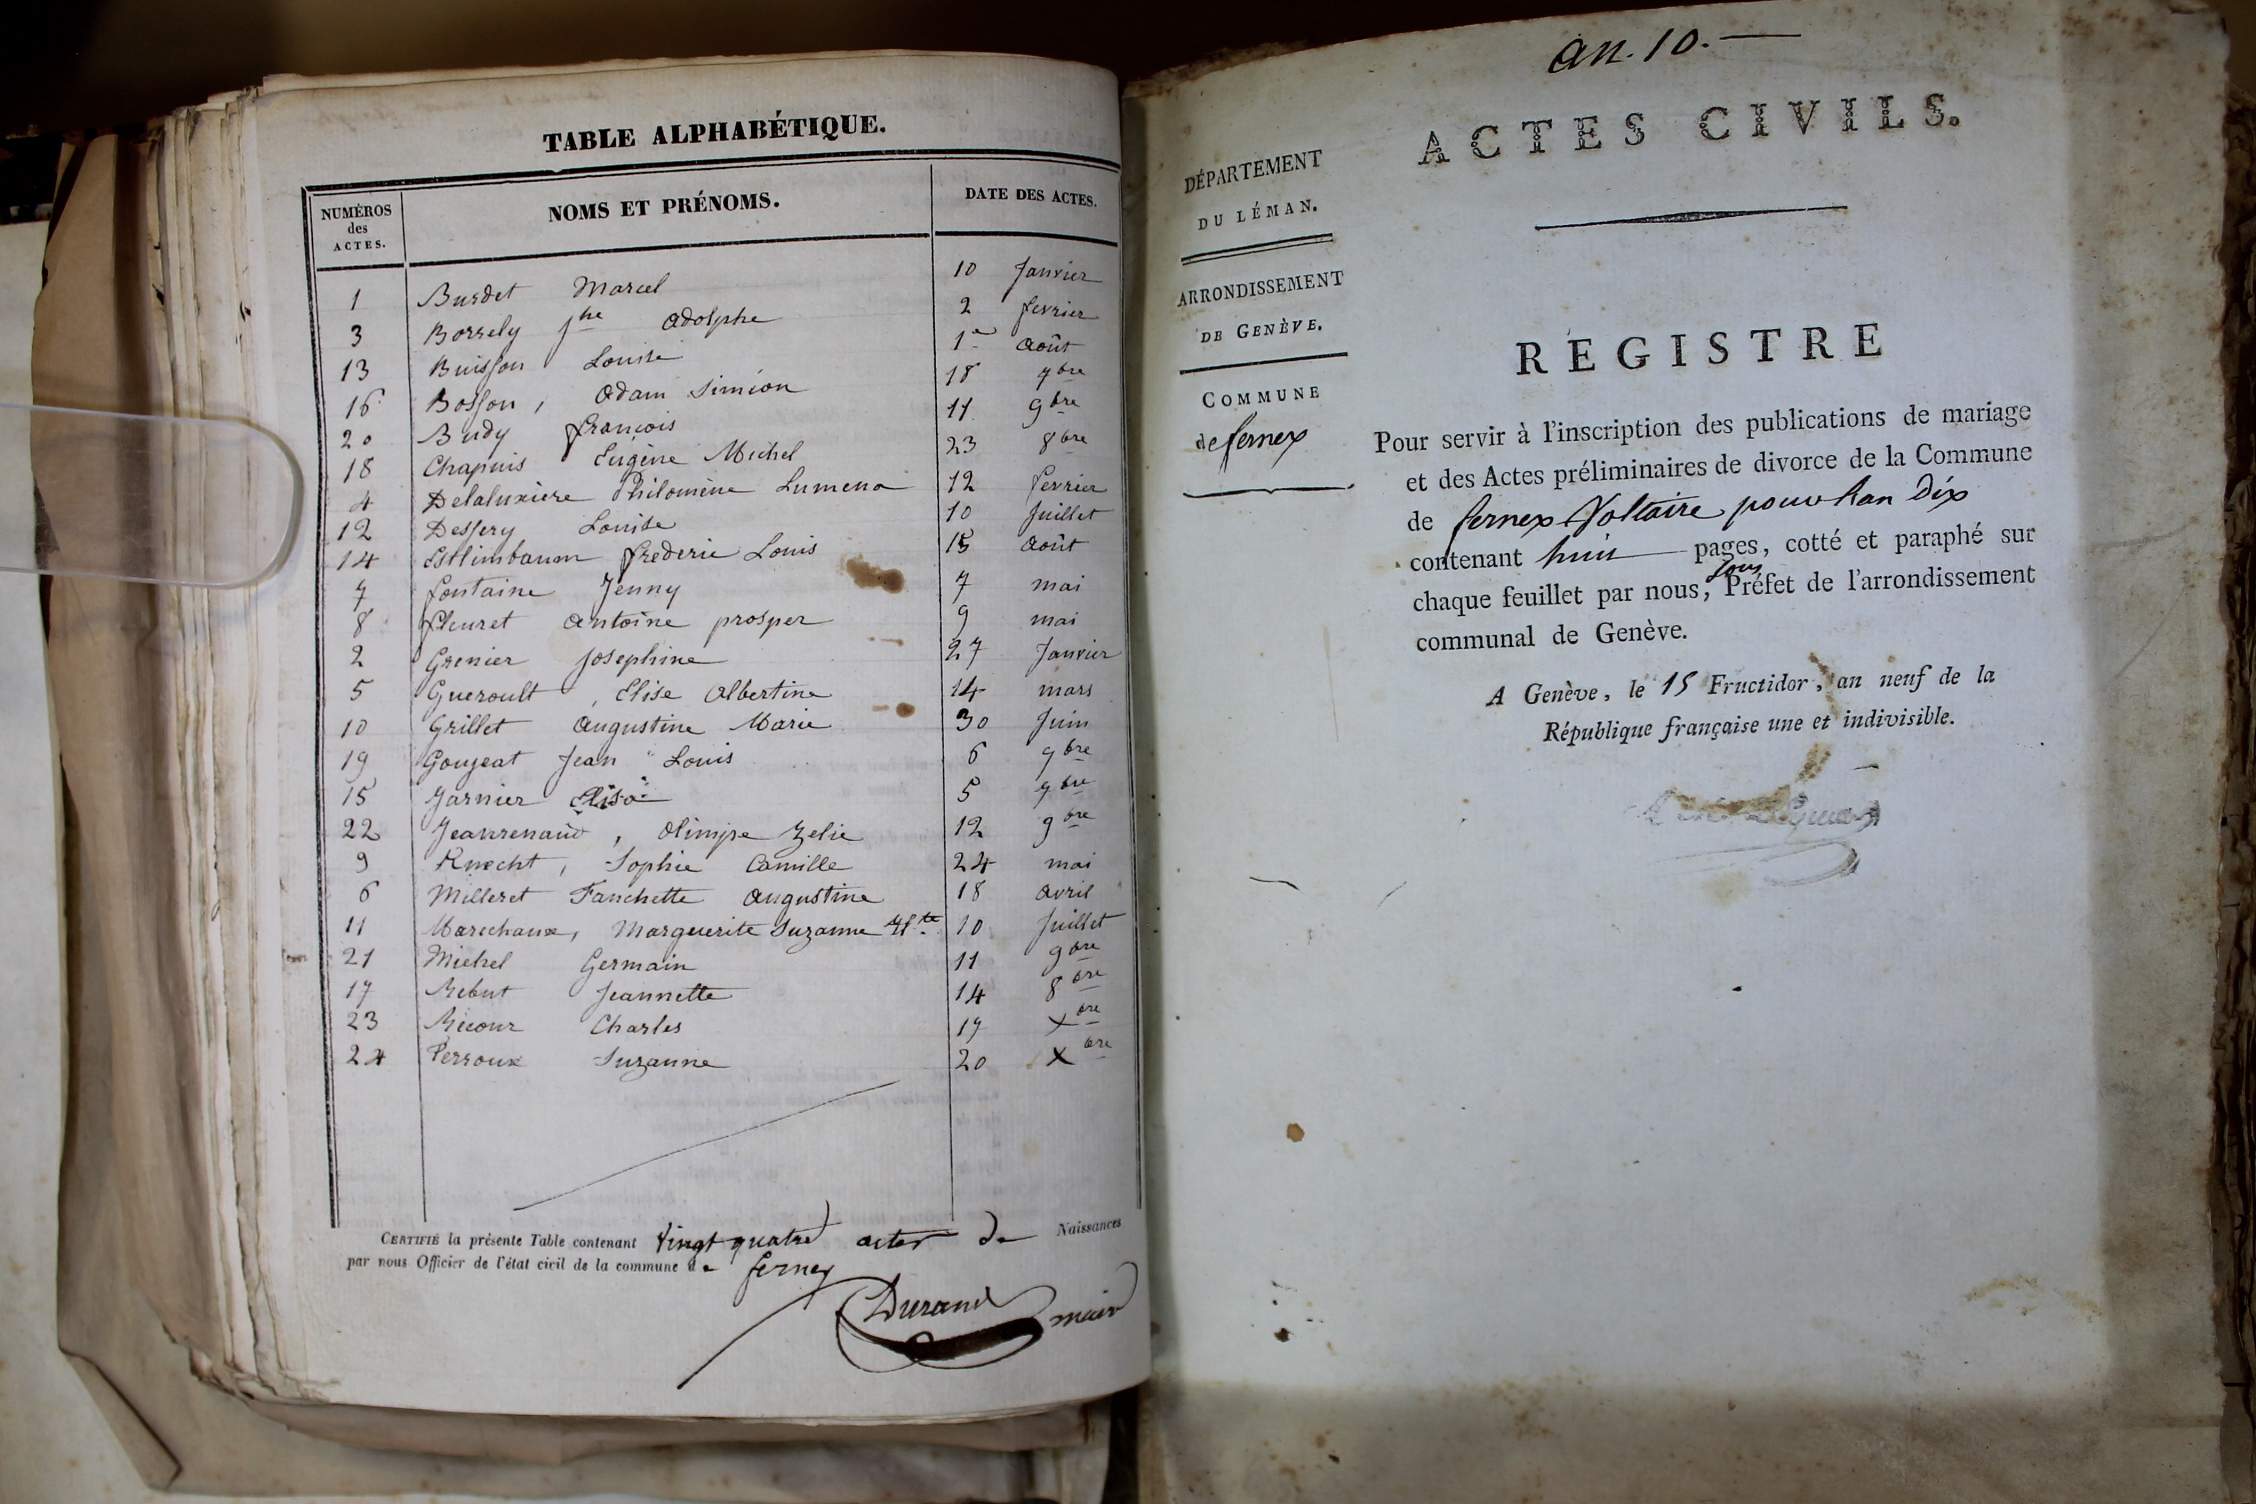 TABLE ALPHABÉTIQUE.
NUMÉROS des ACTES. NOMS ET PRÉNOMS. DATE DES ACTES.
1 Burdet Marcel 10 Janvier
3 Borrely Jhe adolphe 2 fevrier
13 Buisson Louise 1er août
16 Bosson, adam Siméon 18 7bre
20 Budy françois 11 9bre
18 Chapuis Eugène Michel 23 8bre
4 Delaluxière Philomène Lumena 12 fevrier
12 Dessery Louise 10 Juillet
14 Estlimbaum frederic Louis 15 août
7 fontaine Jenny 7 mai
8 fleuret antoine prosper 9 mai
2 Grenier Josephine 27 Janvier
5 Gueroult, Elise albertine 14 mars
10 Grillet augustine Marie 30 Juin
19 Goujeat Jean Louis 6 9bre
15 Jarnier Elisa 5 7bre
22 Jeanrenaud, olimpe Zelie 12 9bre
9 Knecht, Sophie Camille 24 mai
6 Milleret Fanchette augustine 18 avril
11 Marechaux, Marguerite Suzanne 10 Juillet
21 Michel Germain 11 9bre
17 Rebut Jeannette 14 8bre
23 Ricour Charles 17 Xbre
24 Perroux Suzanne 20 Xbre
CERTIFIÉ la présente Table contenant vingt quatre actes de Naissances
par nous Officier de l'état civil de la commune de ferney
Durand maire
an. 10.
ACTES CIVILS.
DÉPARTEMENT
DU LÉMAN.
ARRONDISSEMENT
DE GENÈVE.
COMMUNE
de fernex
REGISTRE
Pour servir à l'inscription des publications de mariage
et des Actes préliminaires de divorce de la Commune
de fernex Voltaire pour l'an Dix
contenant huit pages, cotté et paraphé sur
chaque feuillet par nous, sous Préfet de l'arrondissement
communal de Genève.
A Genève, le 15 Fructidor, an neuf de la
République française une et indivisible.